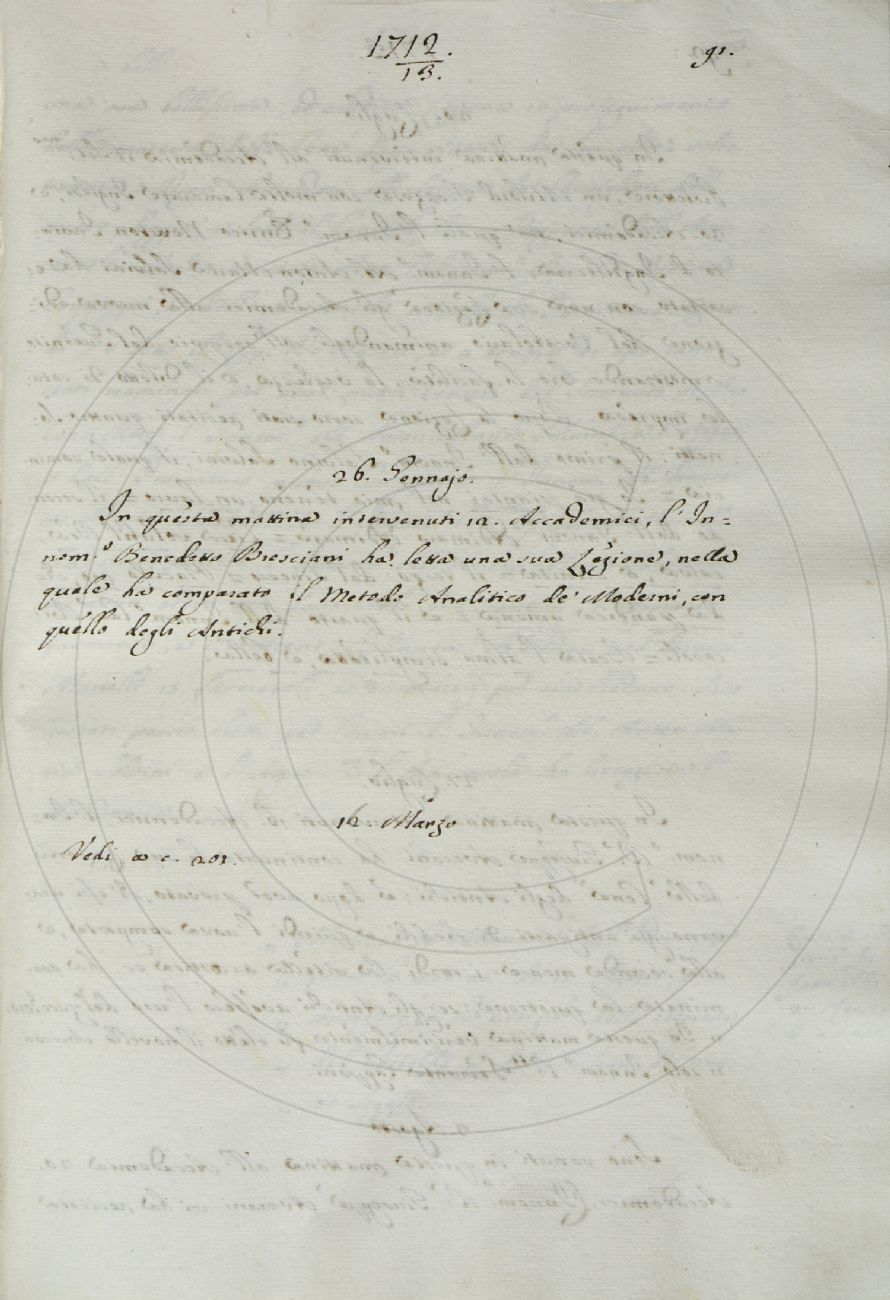 1712.
13.
91.
26. Gennajo.
In questa mattina intervenuti 12. Accademici, l'In=
nom.º Benedetto Bresciani ha letta una sua Lezione, nella
quale ha comparato il Metodo Analitico de' Moderni, con
quello degli Antichi.
16. Marzo
Vedi a c. 201.